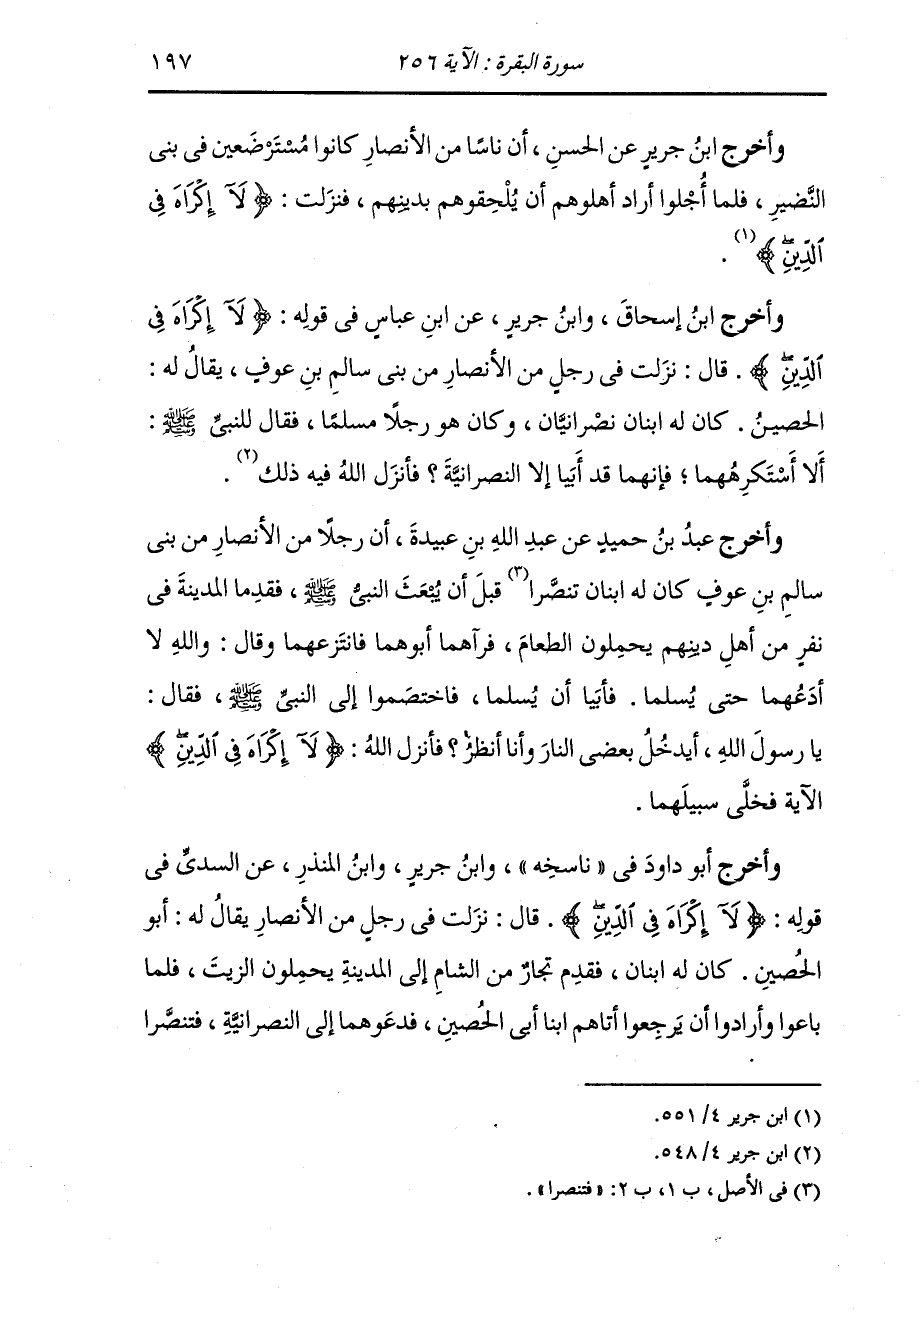 سورة البقرة : الآية ٢٥٦ ١٩٧
وأخرج ابنُ جريرٍ عن الحسنِ ، أن ناسًا من الأنصارِ كانوا مُسْتَرْضَعين فى بنى
النَّضيرِ ، فلما أُجْلوا أراد أهلوهم أن يُلْحِقوهم بدينِهم ، فنزَلت : ﴿ لَآ إِكْرَاهَ فِى
ٱلدِّينِۖ ﴾(١) .
وأخرج ابنُ إسحاقَ ، وابنُ جريرٍ ، عن ابنِ عباسٍ فى قولِه : ﴿ لَآ إِكْرَاهَ فِى
ٱلدِّينِۖ ﴾ . قال : نزَلت فى رجلٍ من الأنصارِ من بنى سالمِ بنِ عوفٍ ، يقالُ له :
الحصينُ . كان له ابنان نصْرانيَّان ، وكان هو رجلًا مسلمًا ، فقال للنبىِّ ﷺ :
أَلا أَسْتَكرِهُهما ؛ فإنهما قد أَبَيا إلا النصرانيَّةَ ؟ فأنزَل اللهُ فيه ذلك(٢) .
وأخرج عبدُ بنُ حميدٍ عن عبدِ اللهِ بنِ عبيدةَ ، أن رجلًا من الأنصارِ من بنى
سالمِ بنِ عوفٍ كان له ابنان تنصَّرا(٣) قبلَ أن يُبْعَثَ النبىُّ ﷺ ، فقدِما المدينةَ فى
نفرٍ من أهلِ دينِهم يحمِلون الطعامَ ، فرآهما أبوهما فانتَزعهما وقال : واللهِ لا
أدَعُهما حتى يُسلما . فأبَيا أن يُسلما ، فاختصَموا إلى النبىِّ ﷺ ، فقال :
يا رسولَ اللهِ ، أيدخُلُ بعضى النارَ وأنا أنظرُ ؟ فأنزل اللهُ : ﴿ لَآ إِكْرَاهَ فِى ٱلدِّينِۖ ﴾
الآية فخلَّى سبيلَهما .
وأخرج أبو داودَ فى « ناسخِه » ، وابنُ جريرٍ ، وابنُ المنذرِ ، عن السدىِّ فى
قولِه : ﴿ لَآ إِكْرَاهَ فِى ٱلدِّينِۖ ﴾ . قال : نزَلت فى رجلٍ من الأنصارِ يقالُ له : أبو
الحُصينِ . كان له ابنان ، فقدِم تجارٌ من الشامِ إلى المدينةِ يحمِلون الزيتَ ، فلما
باعوا وأرادوا أن يَرجِعوا أتاهم ابنا أبى الحُصينِ ، فدعَوهما إلى النصرانيَّةِ ، فتنصَّرا
(١) ابن جرير ٤/ ٥٥١.
(٢) ابن جرير ٤/ ٥٤٨.
(٣) فى الأصل ، ب ١، ب ٢: « فتنصرا » .